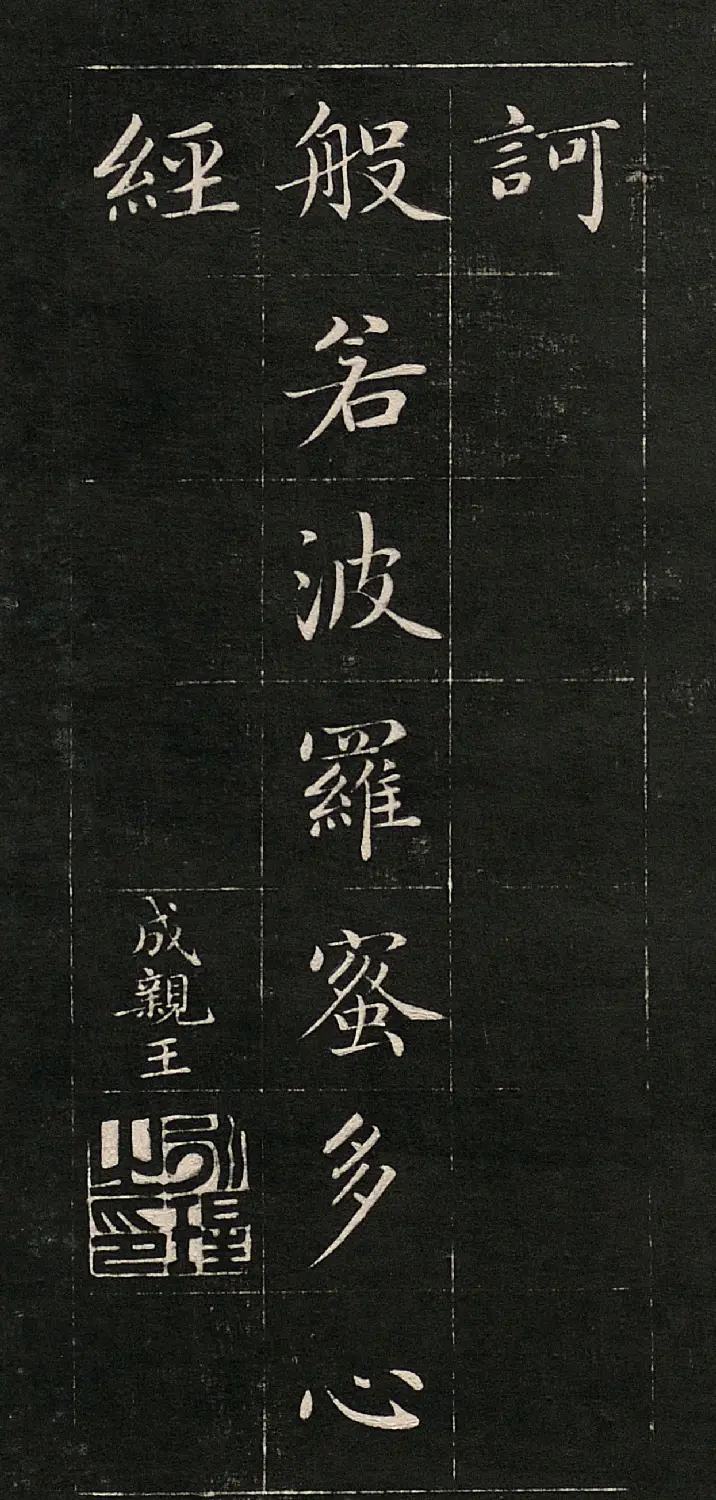 訶
般若波羅蜜多心
經
成親王